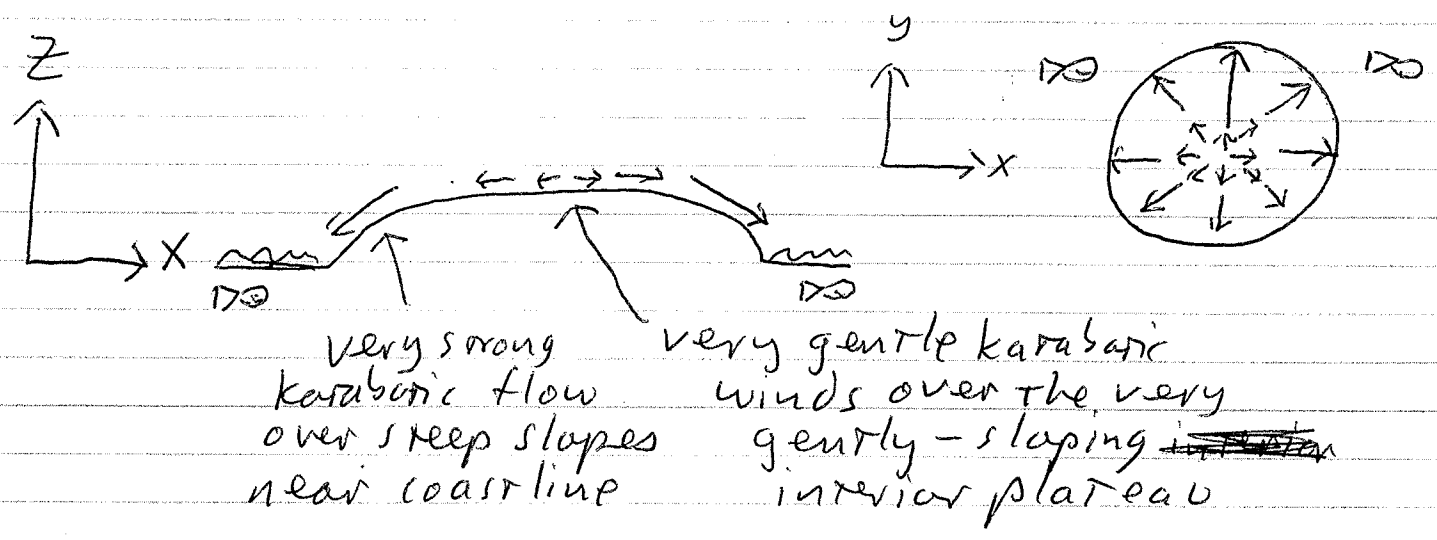 Z
X
y
x
very strong
katabatic flow
over steep slopes
near coastline
very gentle katabatic
winds over the very
gently-sloping
interior plateau